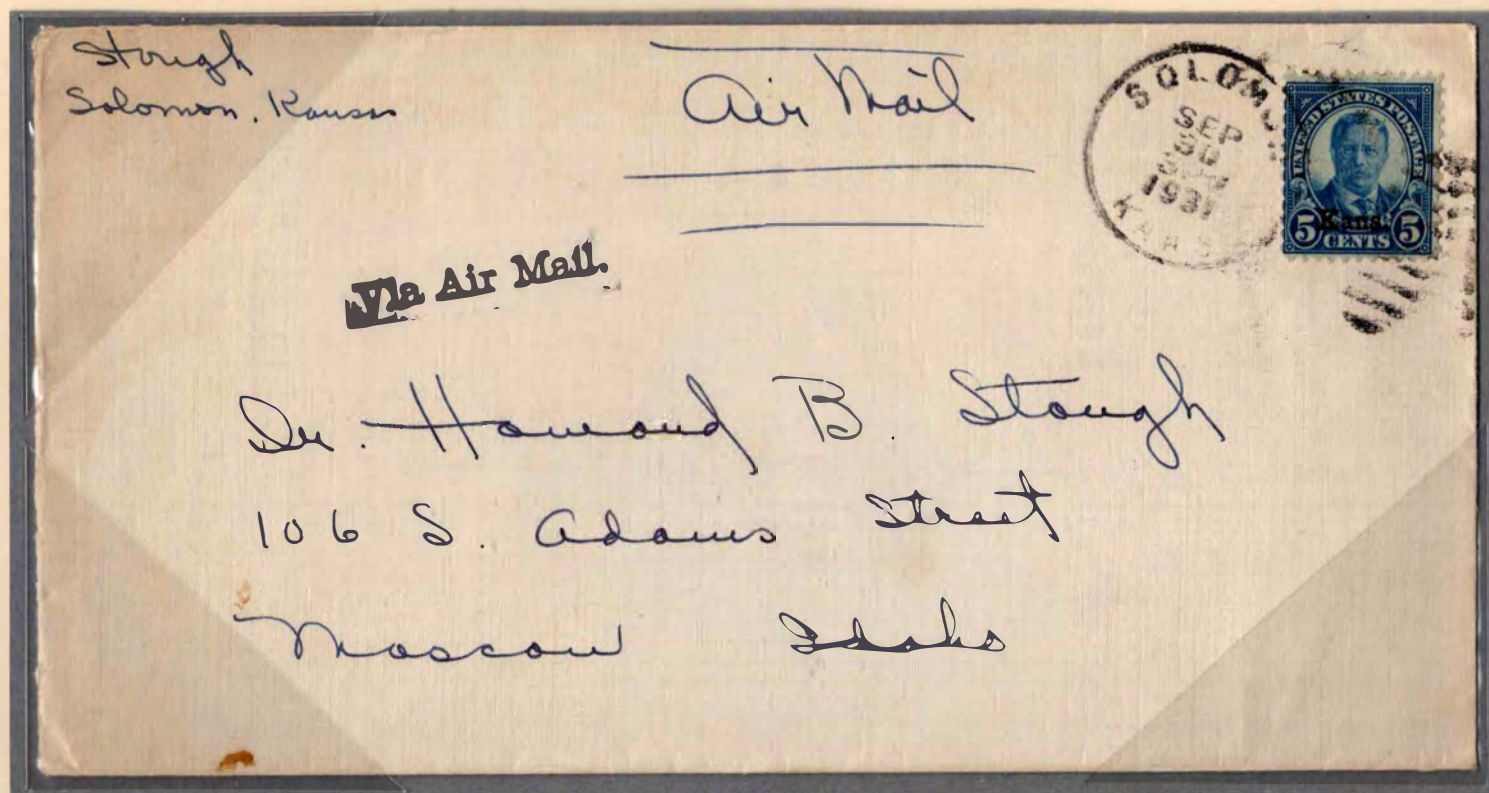 Stough
Solomon, Kansas
Air Mail
SOLOMON
SEP
30
1931
KANS.
UNITED STATES POSTAGE
Kans.
5 CENTS 5
Via Air Mail.
Dr. Howard B. Stough
106 S. Adams Street
Moscow Idaho